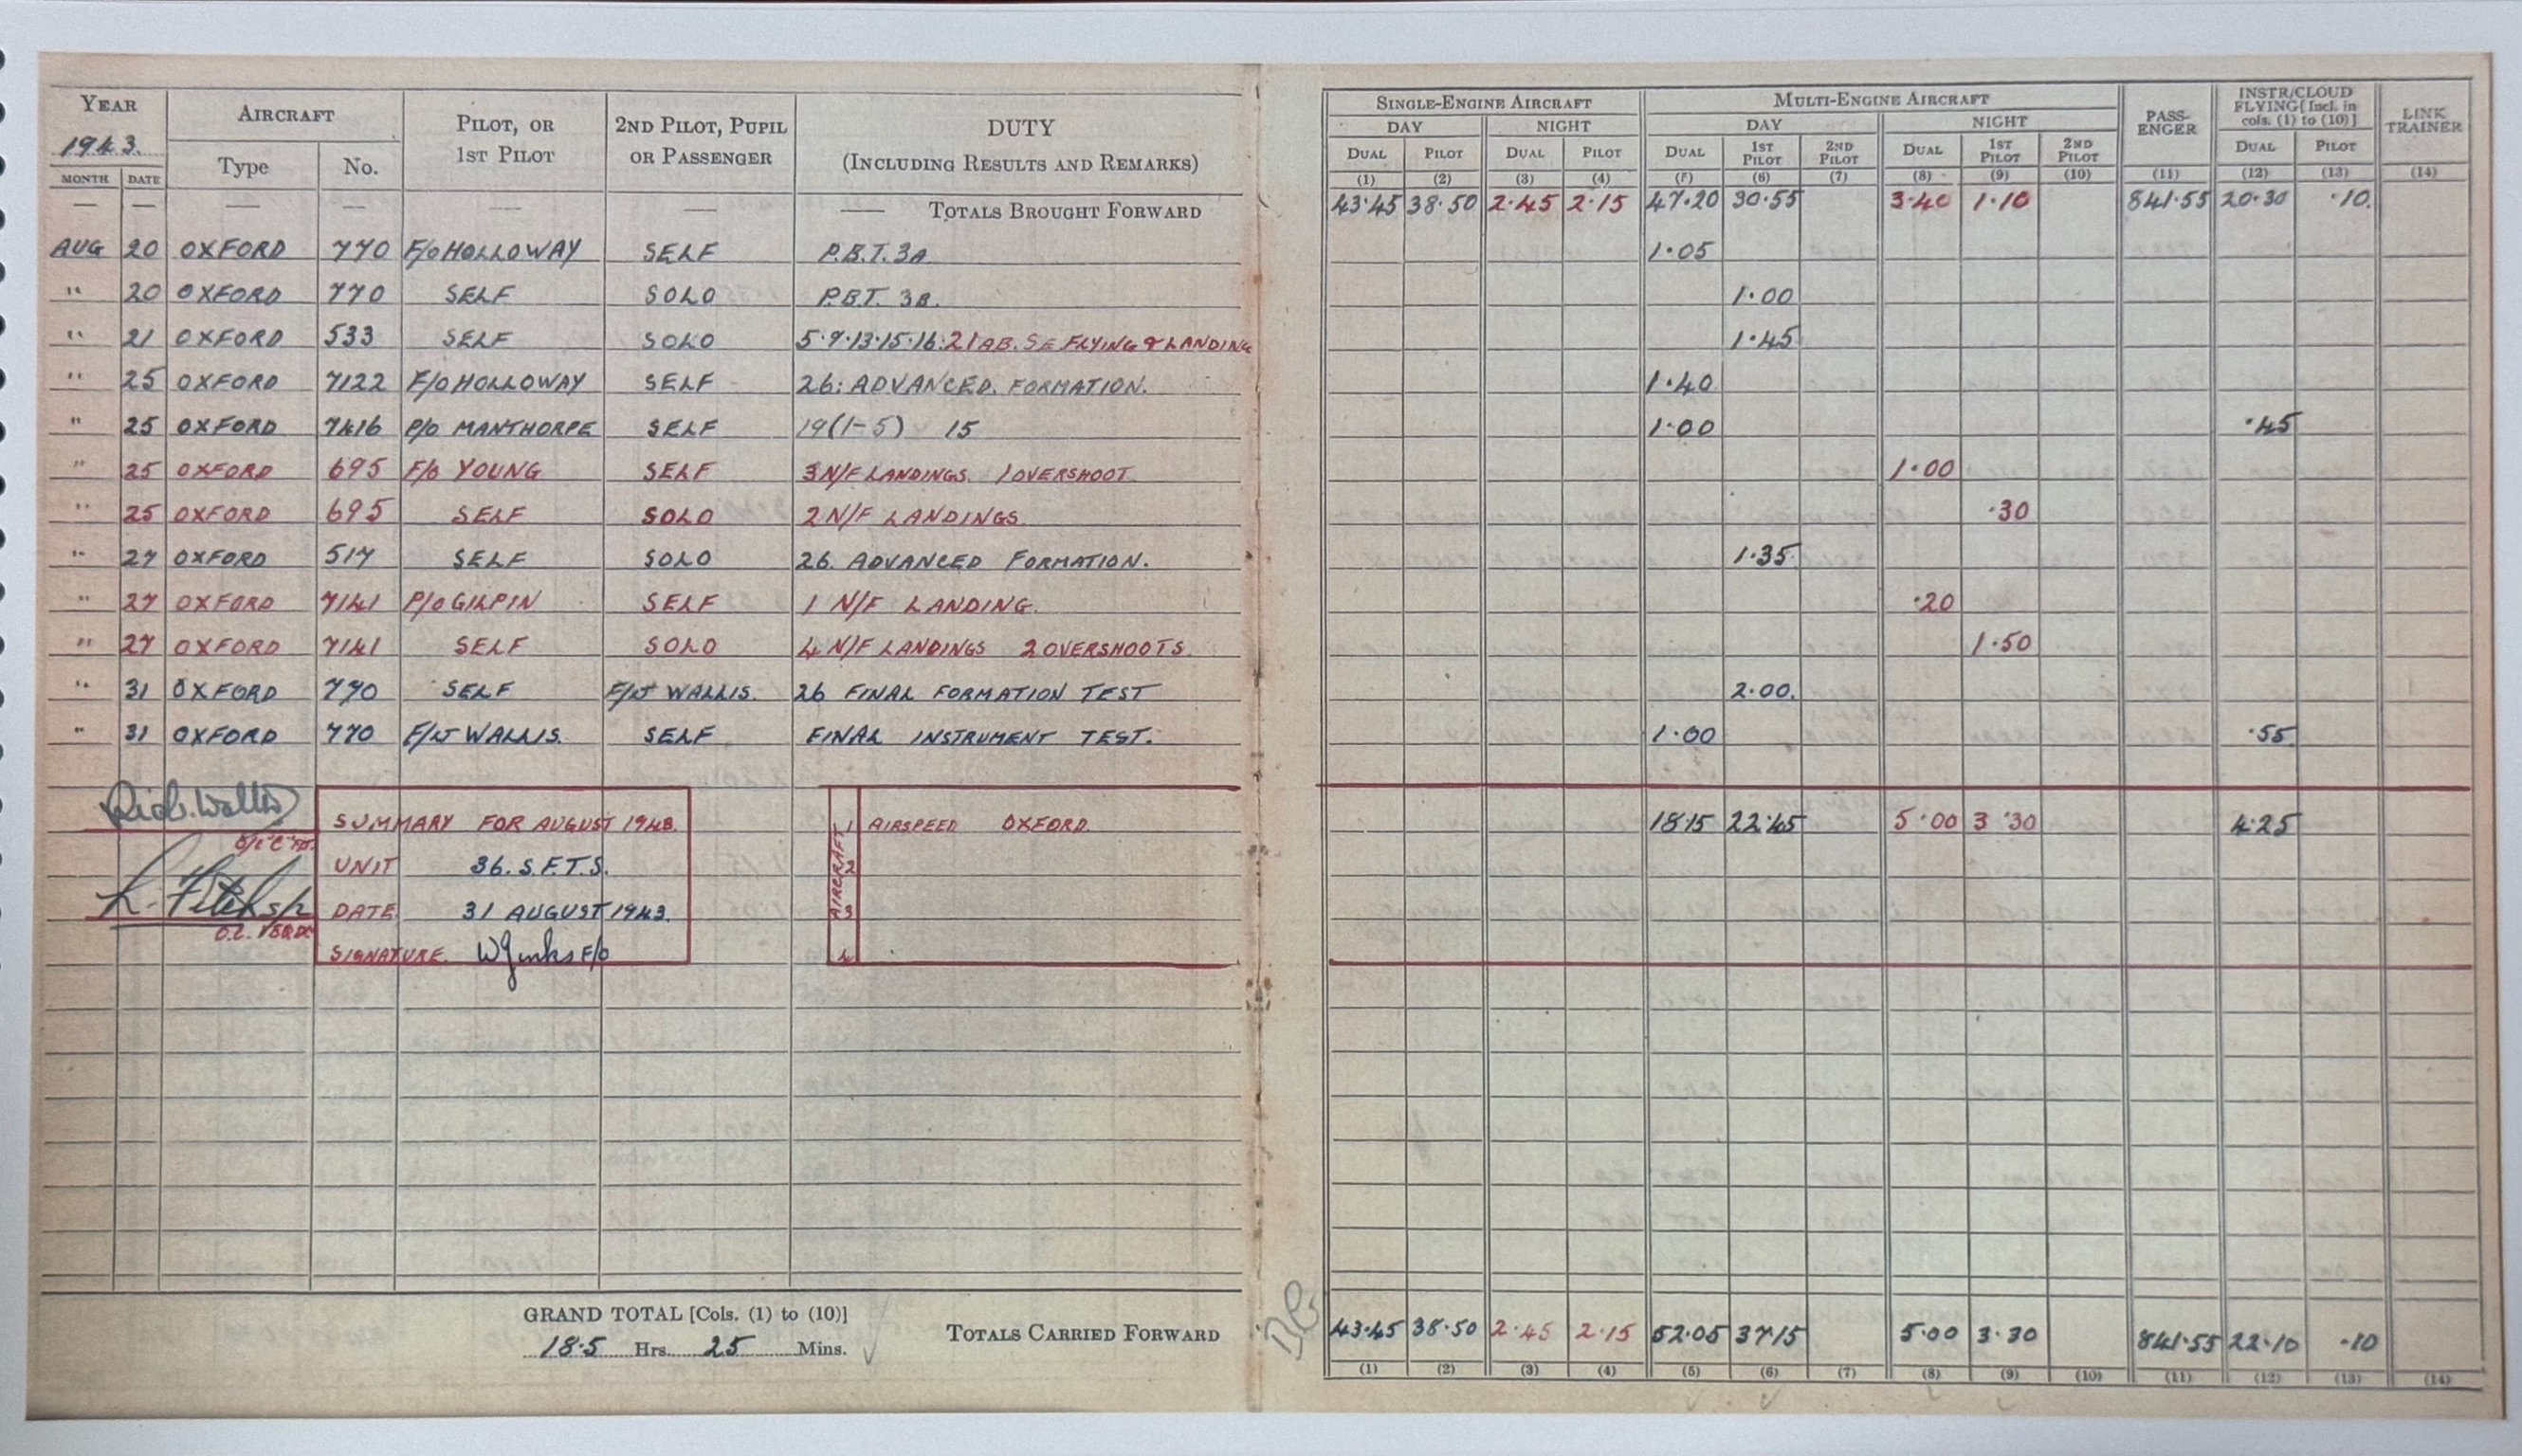 YEAR AIRCRAFT PILOT, OR 1ST PILOT 2ND PILOT, PUPIL OR PASSENGER DUTY (INCLUDING RESULTS AND REMARKS) SINGLE-ENGINE AIRCRAFT MULTI-ENGINE AIRCRAFT PASS-ENGER INSTR/CLOUD FLYING [Incl. in cols. (1) to (10)] LINK TRAINER
1943. Type No. DAY NIGHT DAY NIGHT
MONTH DATE DUAL PILOT DUAL PILOT DUAL 1ST PILOT 2ND PILOT DUAL 1ST PILOT 2ND PILOT DUAL PILOT
(1) (2) (3) (4) (5) (6) (7) (8) (9) (10) (11) (12) (13) (14)
— — — — — — — TOTALS BROUGHT FORWARD 43.45 38.50 2.45 2.15 47.20 30.55 3.40 1.10 841.55 20.30 .10.
AUG 20 OXFORD 770 F/O HOLLOWAY SELF P.B.T. 3A 1.05
" 20 OXFORD 770 SELF SOLO P.B.T. 3B. 1.00
" 21 OXFORD 533 SELF SOLO 5.9.13.15.16.21AB. SE FLYING & LANDING 1.45
" 25 OXFORD 7122 F/O HOLLOWAY SELF 26: ADVANCED. FORMATION. 1.40
" 25 OXFORD 7416 P/O MANTHORPE SELF 19(1-5) 15 1.00 .45
" 25 OXFORD 695 F/O YOUNG SELF 3 N/F LANDINGS. 1 OVERSHOOT 1.00
" 25 OXFORD 695 SELF SOLO 2 N/F LANDINGS. .30
" 27 OXFORD 517 SELF SOLO 26. ADVANCED FORMATION. 1.35.
" 27 OXFORD 7141 P/O GILPIN SELF 1 N/F LANDING. .20
" 27 OXFORD 7141 SELF SOLO 4 N/F LANDINGS 2 OVERSHOOTS. 1.50
" 31 OXFORD 770 SELF F/LT WALLIS. 26 FINAL FORMATION TEST 2.00.
" 31 OXFORD 770 F/LT WALLIS. SELF FINAL INSTRUMENT TEST. 1.00 .55.
SUMMARY FOR AUGUST 1943. AIRCRAFT 1 AIRSPEED OXFORD. 18.15 22.45 5.00 3.30 4.25
UNIT 36. S.F.T.S. 2
DATE 31 AUGUST 1943. 3
SIGNATURE. WJinks F/O 4
GRAND TOTAL [Cols. (1) to (10)]
185 Hrs. 25 Mins. TOTALS CARRIED FORWARD 43.45 38.50 2.45 2.15 52.05 37.15 5.00 3.30 841.55 22.10 .10
(1) (2) (3) (4) (5) (6) (7) (8) (9) (10) (11) (12) (13) (14)